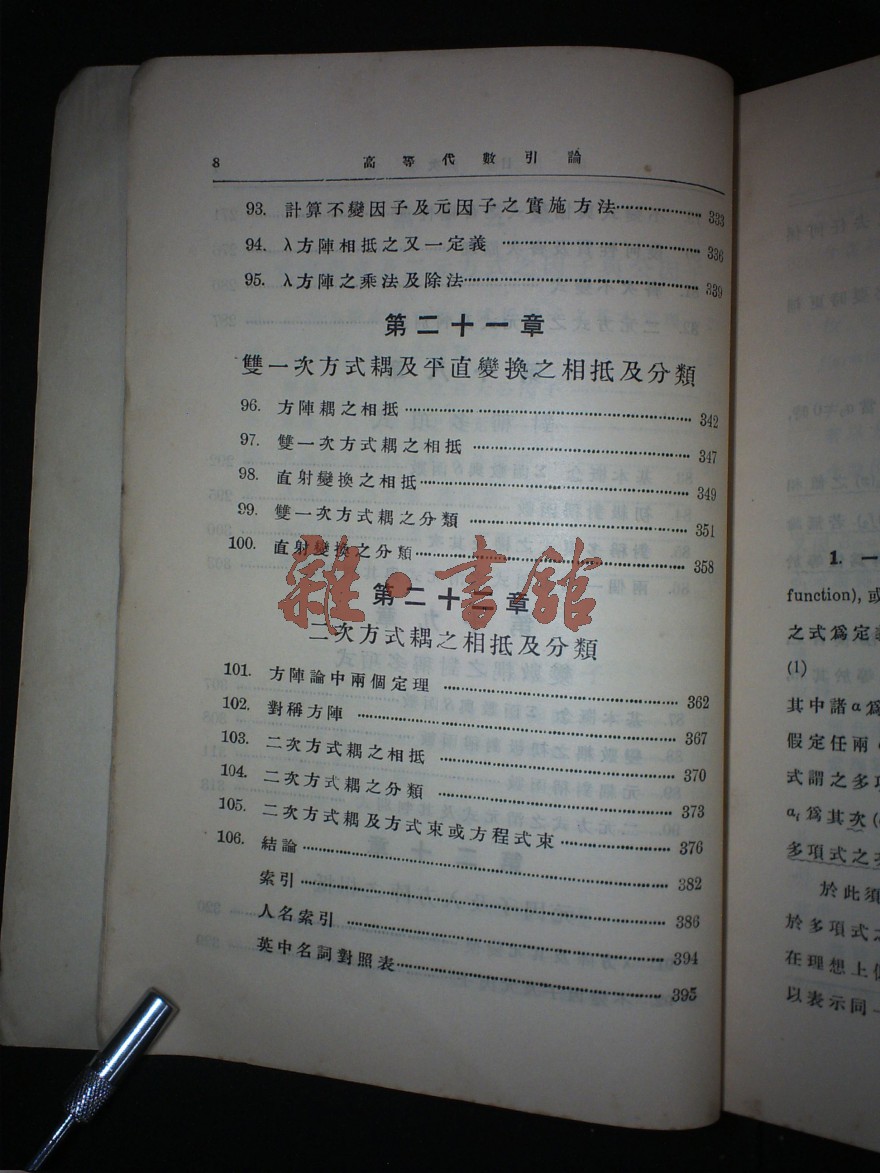 8 高等代數引論
93. 計算不變因子及元因子之實施方法 333
94. λ方陣相抵之又一定義 336
95. λ方陣之乘法及除法 339
第二十一章
雙一次方式耦及平直變換之相抵及分類
96. 方陣耦之相抵 342
97. 雙一次方式耦之相抵 347
98. 直射變換之相抵 349
99. 雙一次方式耦之分類 351
100. 直射變換之分類 358
雜·書館
第二十二章
二次方式耦之相抵及分類
101. 方陣論中兩個定理 362
102. 對稱方陣 367
103. 二次方式耦之相抵 370
104. 二次方式耦之分類 373
105. 二次方式耦及方式束或方程式束 376
106. 結論 382
索引 386
人名索引 394
英中名詞對照表 395
1. 一
function), 或
之式為定義
(1)
其中諸α為
假定任兩
式謂之多項
αᵢ為其次
多項式之
於此須
於多項式之
在理想上
以表示同一